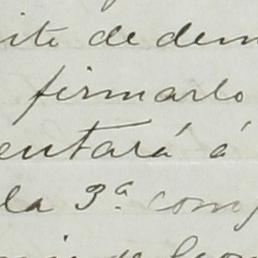 ite de dem
firmarlo
entará á
la 3ª comp
de Leon